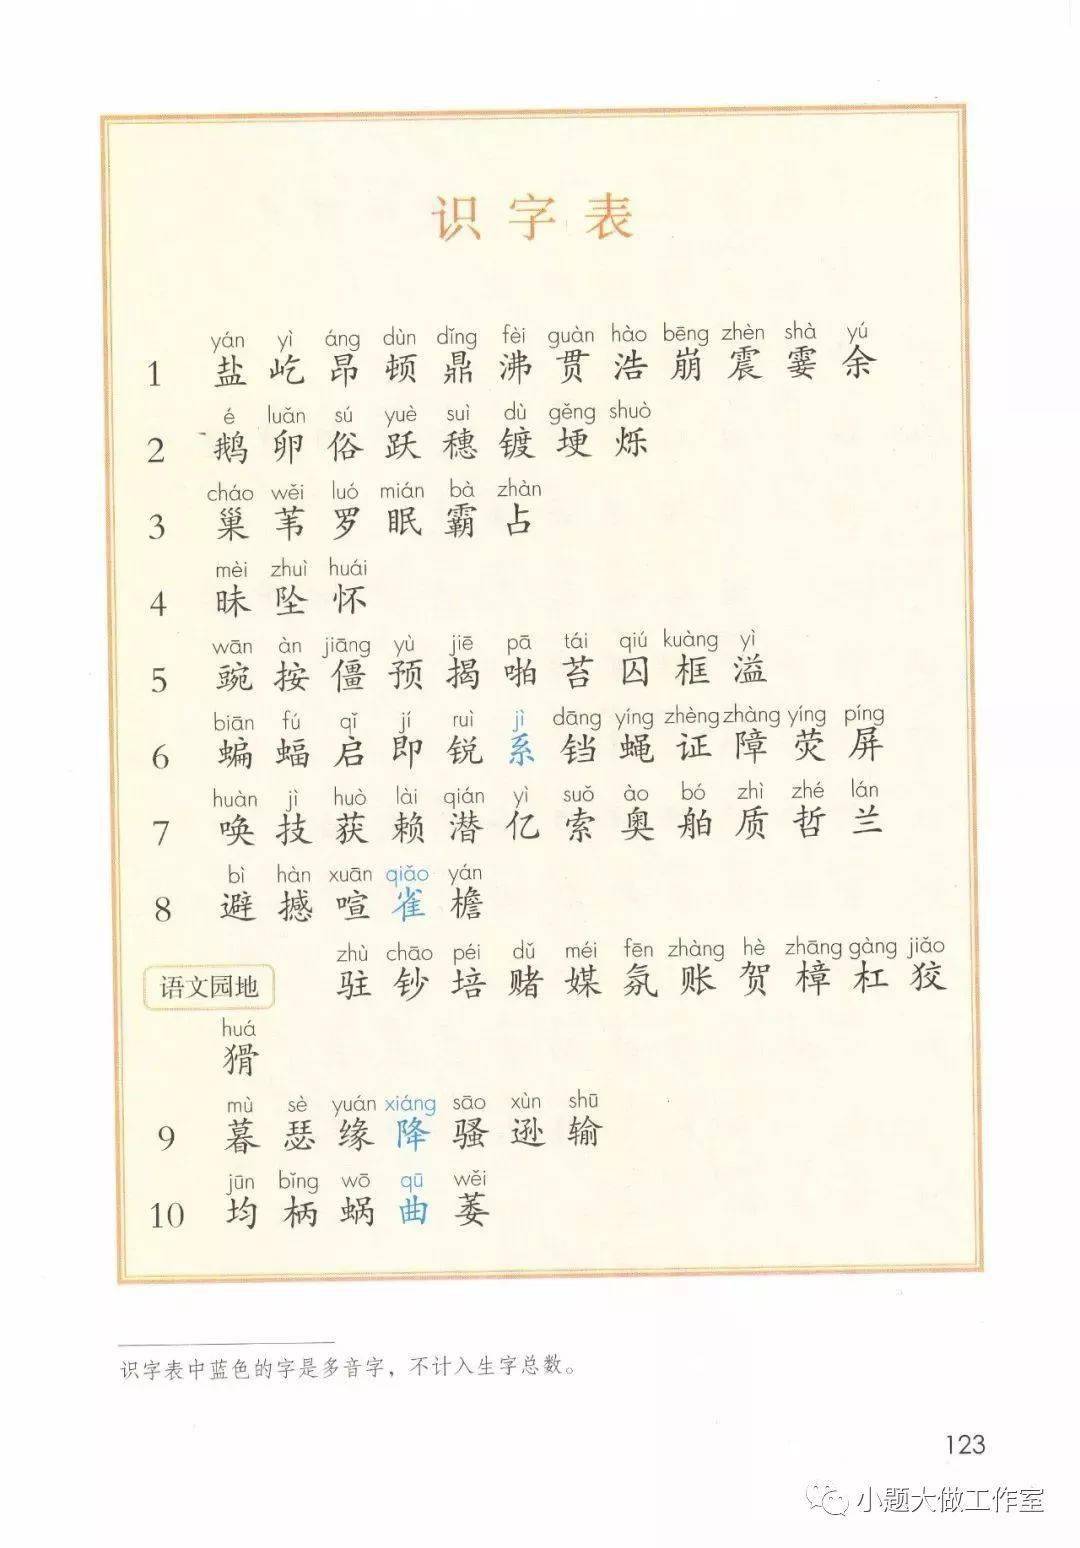 识字表
yán yì áng dùn dǐng fèi guàn hào bēng zhèn shà yú
1 盐 屹 昂 顿 鼎 沸 贯 浩 崩 震 霎 余
é luǎn sú yuè suì dù gěng shuò
2 鹅 卵 俗 跃 穗 镀 埂 烁
cháo wěi luó mián bà zhàn
3 巢 苇 罗 眠 霸 占
mèi zhuì huái
4 昧 坠 怀
wān àn jiāng yù jiē pā tái qiú kuàng yì
5 豌 按 僵 预 揭 啪 苔 囚 框 溢
biān fú qǐ jí ruì jì dāng yíng zhèng zhàng yíng píng
6 蝙 蝠 启 即 锐 系 铛 蝇 证 障 荧 屏
huàn jì huò lài qián yì suǒ ào bó zhì zhé lán
7 唤 技 获 赖 潜 亿 索 奥 舶 质 哲 兰
bì hàn xuān qiǎo yán
8 避 撼 喧 雀 檐
zhù chāo péi dǔ méi fēn zhàng hè zhāng gàng jiǎo
语文园地 驻 钞 培 赌 媒 氛 账 贺 樟 杠 狡
huá
猾
mù sè yuán xiáng sāo xùn shū
9 暮 瑟 缘 降 骚 逊 输
jūn bǐng wō qū wěi
10 均 柄 蜗 曲 萎
识字表中蓝色的字是多音字，不计入生字总数。
123
小题大做工作室